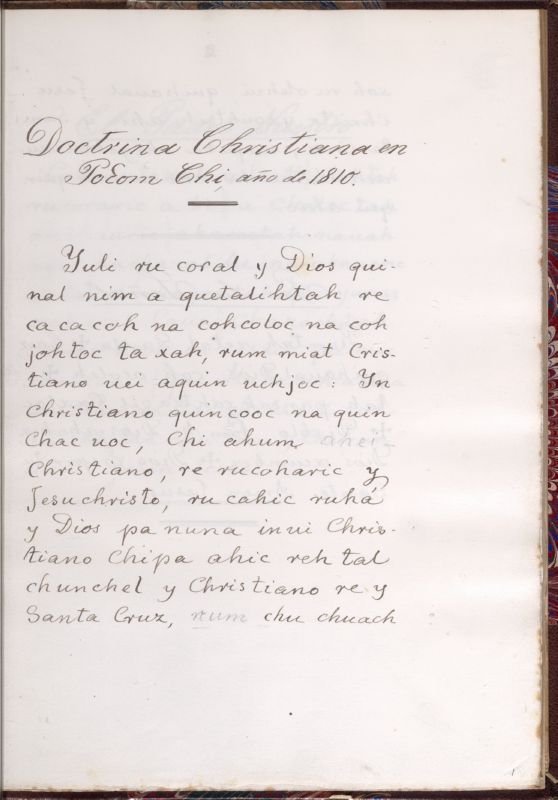 Doctrina Christiana en
Poƹom Chi, año de 1810.
Yuli ru coral y Dios qui-
nal nim a quetalihtah re
ca ca coh na cohcoloc na coh
johtoc ta xah, rum miat Cris-
tiano uei aquin uchjoc: Yn
Christiano quincooc na quin
Chac uoc, Chi ahum ahei-
Christiano, re rucoharic y
Jesuchristo, ru cahic ruhá
y Dios pa nuna inui Chris-
tiano Chipa ahic reh tal
chunchel y Christiano re y
Santa Cruz, rum chu chuach
1